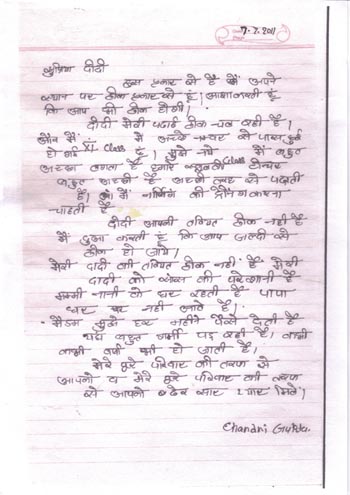 7.7.2011
सुप्रिया दीदी
इस प्रकार से है मैं अपने
स्थान पर ठीक प्रकार से हूं। आशा करती हूं
कि आप भी ठीक होंगी।
दीदी मेरी पढ़ाई ठीक चल रही है।
और मैं XI में अच्छे नम्बर से पास हुई
हो गई XI class हूं। मुझे नये में बहुत
अच्छा लगता है हमारे स्कूल की class टीचर
बहुत अच्छी है अच्छी तरह से पढ़ाती
है। मैं नर्सिंग की ट्रेनिंग करना
चाहती हूं
दीदी आपकी तबियत ठीक नहीं है
मैं दुआ करती हूं कि आप जल्दी से
ठीक हो जाये।
मेरी दादी की तबियत ठीक नहीं है मेरी
दादी को सांस की परेशानी है
मम्मी नानी के घर रहती है पापा
घर पर नहीं आते है।
मैडम मुझे हर महीने पैसे देती है
यहां बहुत गर्मी पड़ रही है। कभी
कभी वर्षा भी हो जाती है।
मेरे पूरे परिवार की तरफ से
आपको व मेरे पूरे परिवार की तरफ
से आपको ढेर सार प्यार मिले।
Chandni Gupta.